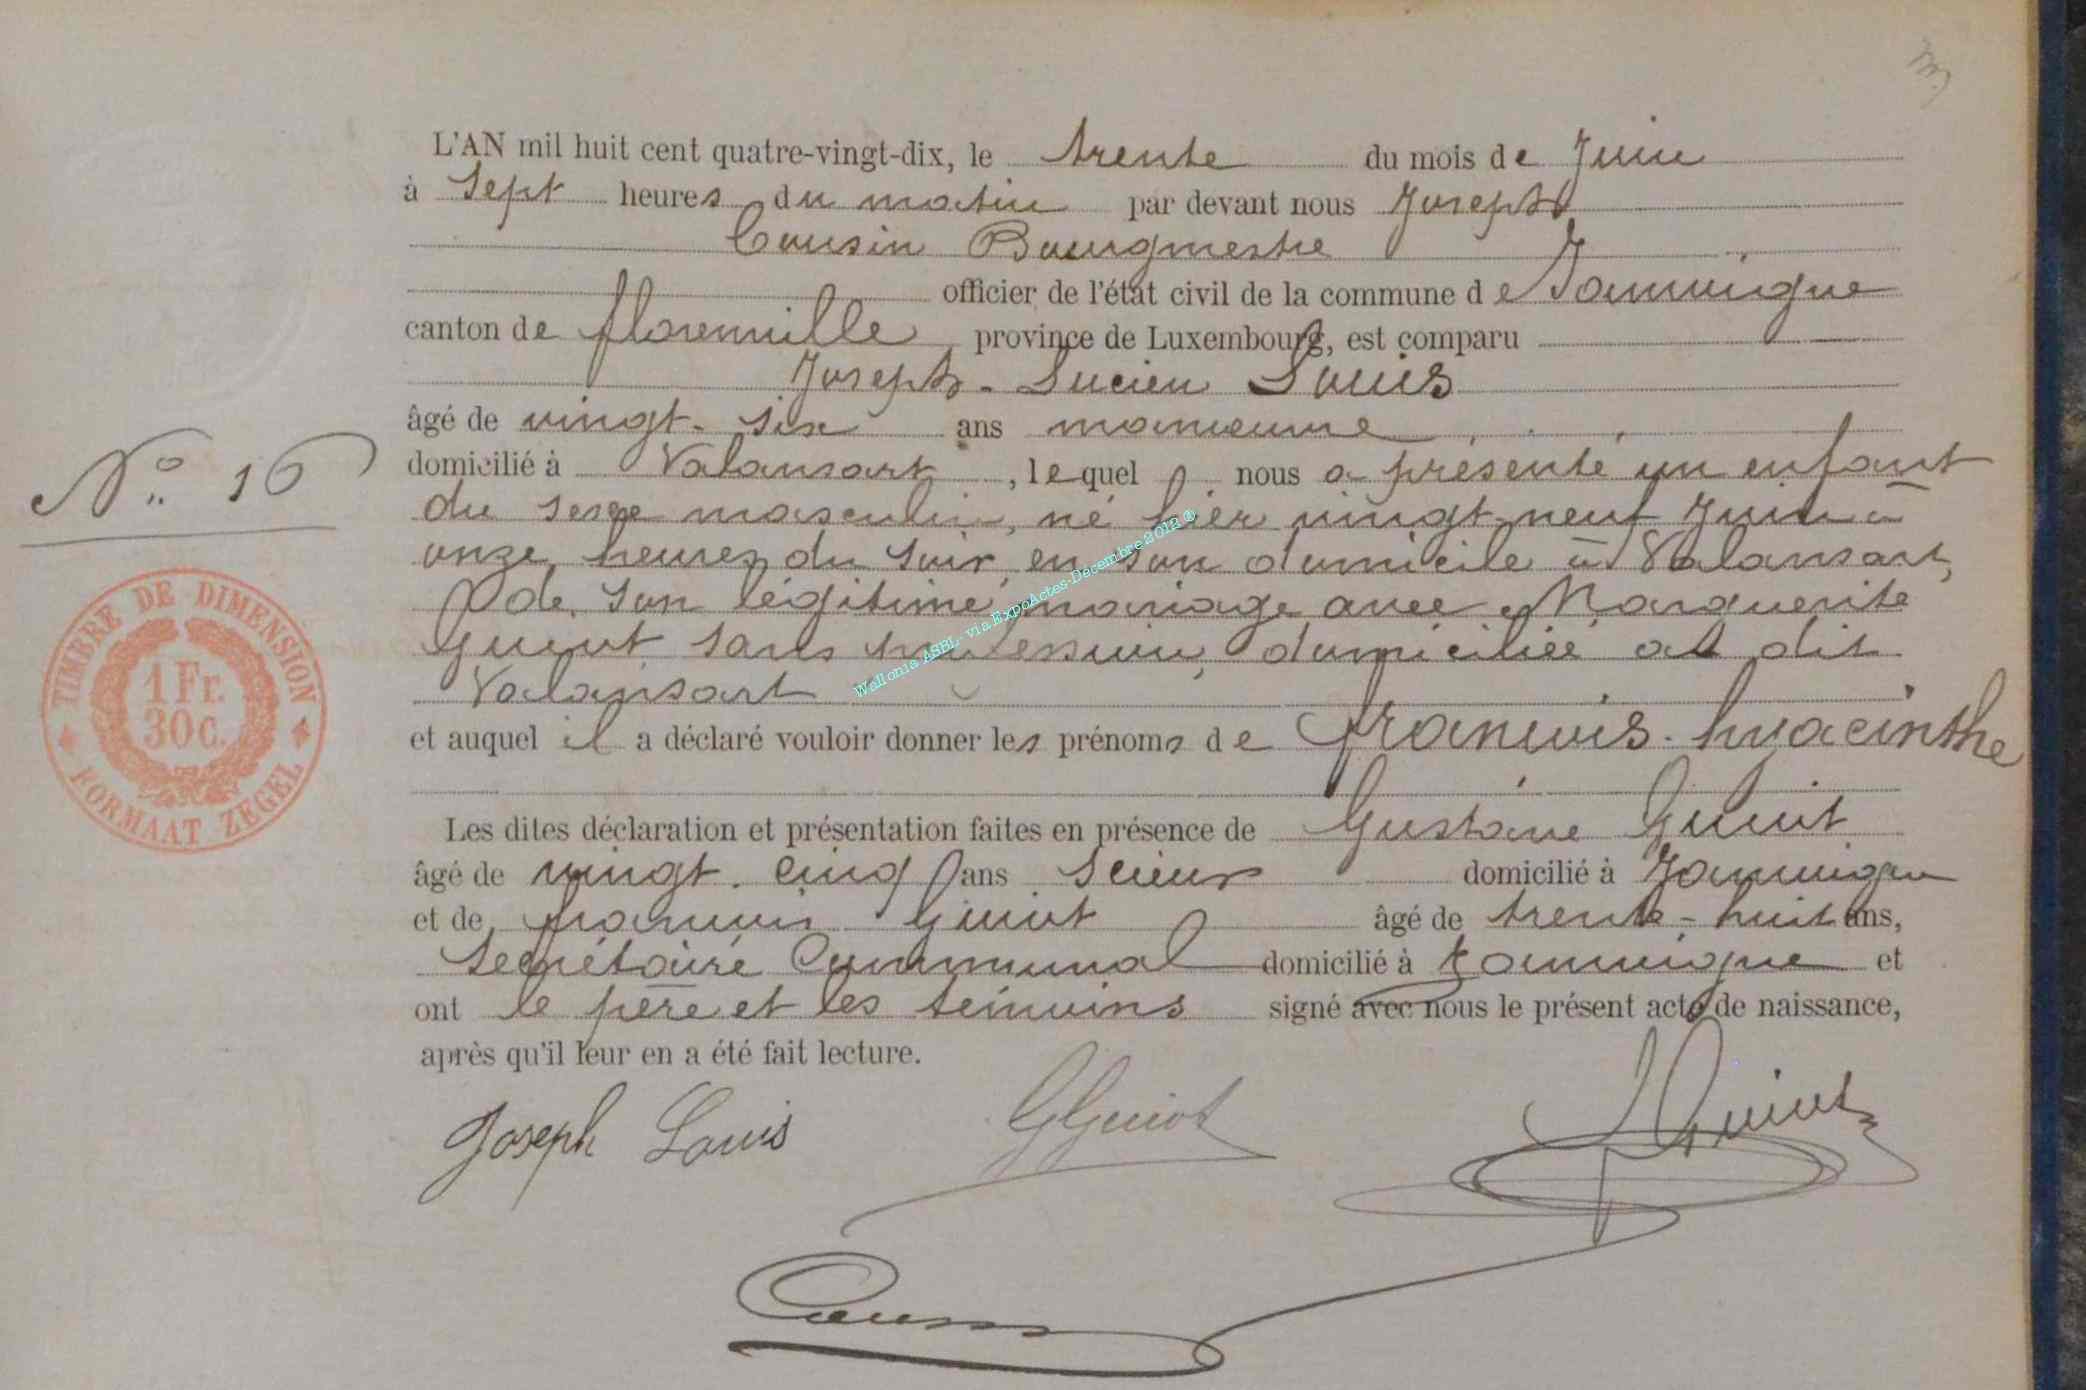 L'AN mil huit cent quatre-vingt-dix, le trente du mois de Juin
à sept heures du matin par devant nous Joseph
Cousin Bourgmestre
officier de l'état civil de la commune de Jamoigne
canton de florenville province de Luxembourg, est comparu
Joseph-Lucien Louis
âgé de vingt-six ans manœuvre
domicilié à Valansart, lequel nous a présenté un enfant
N° 16
du sexe masculin, né hier vingt-neuf Juin à
onze heures du soir, en son domicile à Valansart,
de son légitime mariage avec Marguerite
Guiot sans profession, domiciliée au dit
Valansart
et auquel il a déclaré vouloir donner les prénoms de françois-hyacinthe
Les dites déclaration et présentation faites en présence de Gustave Guiot
âgé de vingt-cinq ans scieur domicilié à Jamoigne
et de françois Guiot âgé de trente-huit ans,
Secrétaire Communal domicilié à Jamoigne et
ont le père et les témoins signé avec nous le présent acte de naissance,
après qu'il leur en a été fait lecture.
Joseph Louis GGuiot Guiot
Cousin
TIMBRE DE DIMENSION
1 Fr.
30 c.
FORMAAT ZEGEL
Wallonia ASBL- via ExpoActes-Decembre 2012 ®